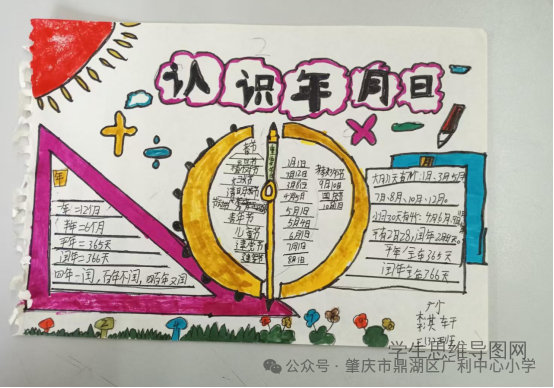 认识年月日
年
一年=12个月
半年=6个月
平年=365天
闰年=366天
四年一闰,百年不闰,四百年又闰
春节
元宵节
清明节
劳动节
青年节
儿童节
建党节
建军节
1月1日
3月12日
5月1日
5月4日
6月1日
7月1日
8月1日
教师节
9月10日
国庆节
10月1日
月
大月31天有1月、3月、5月
7月、8月、10月、12月。
小月30天有4月、6月、9月
平年2月28,闰年2月29天。
平年全年365天
闰年全年366天
学生思维导图网
公众号·肇庆市鼎湖区广利中心小学